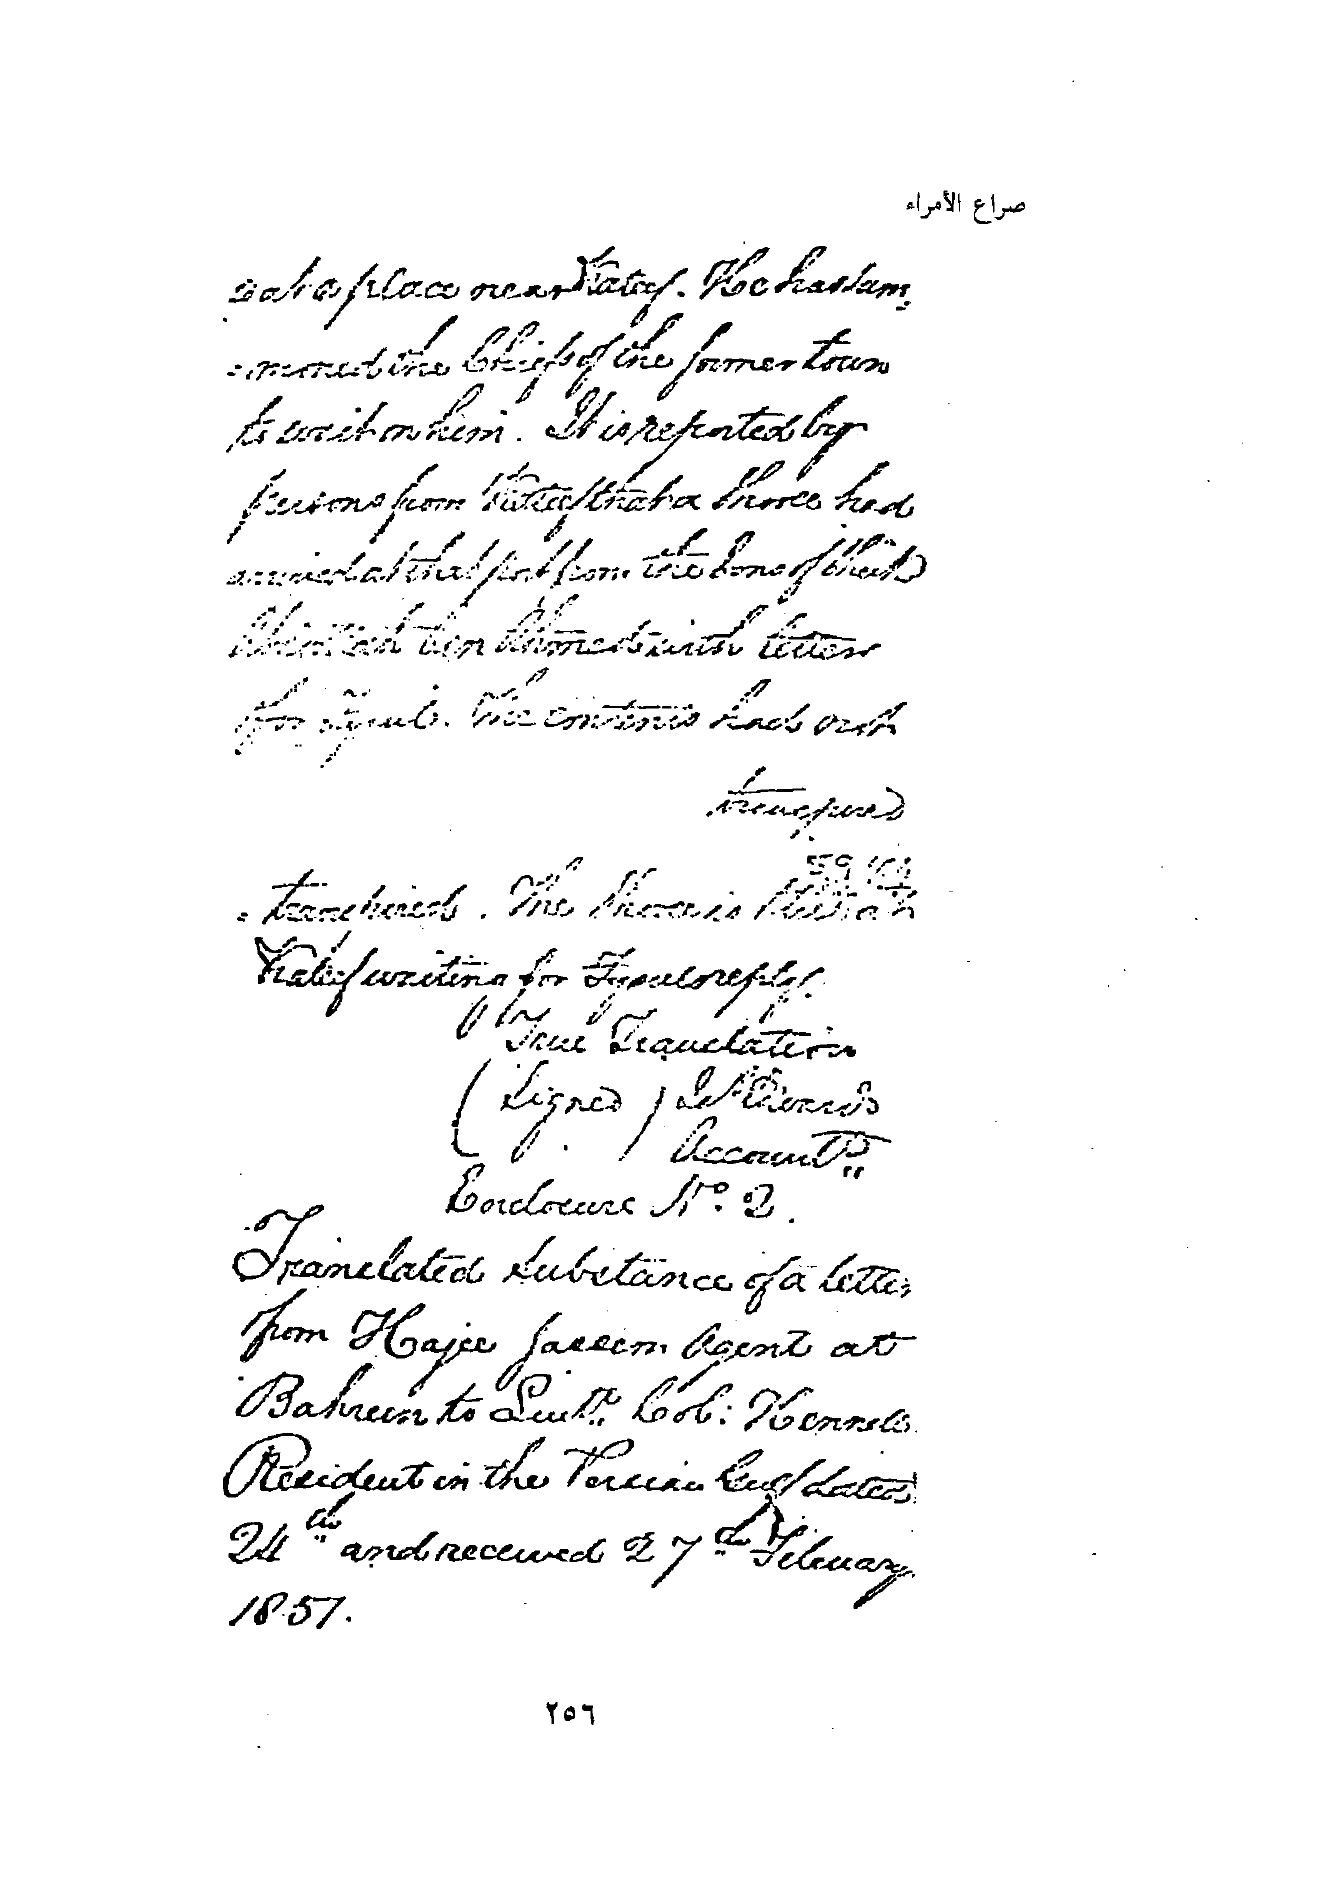 صراع الأمراء
is at a place near Kateef. He has sum,
=moned the Chiefs of the former town
to wait on him. It is reported by
persons from Kateef that a Shooee had
arrived at that port from the sons of Sheikh
Abdullah ben Ahmed with letters
for Fysul. The contents had not
transpired
59
transpired. The Shooee is still at
Kateef waiting for Fysuls reply.
True Translation
(Signed)
Account:
Enclosure No. 2.
Translated Substance of a letter
from Hajee Jassem Agent at
Bahrein to Lieut. Col: Hennell
Resident in the Persian Gulf dated
24th and received 27th February
1851.
٢٥٦